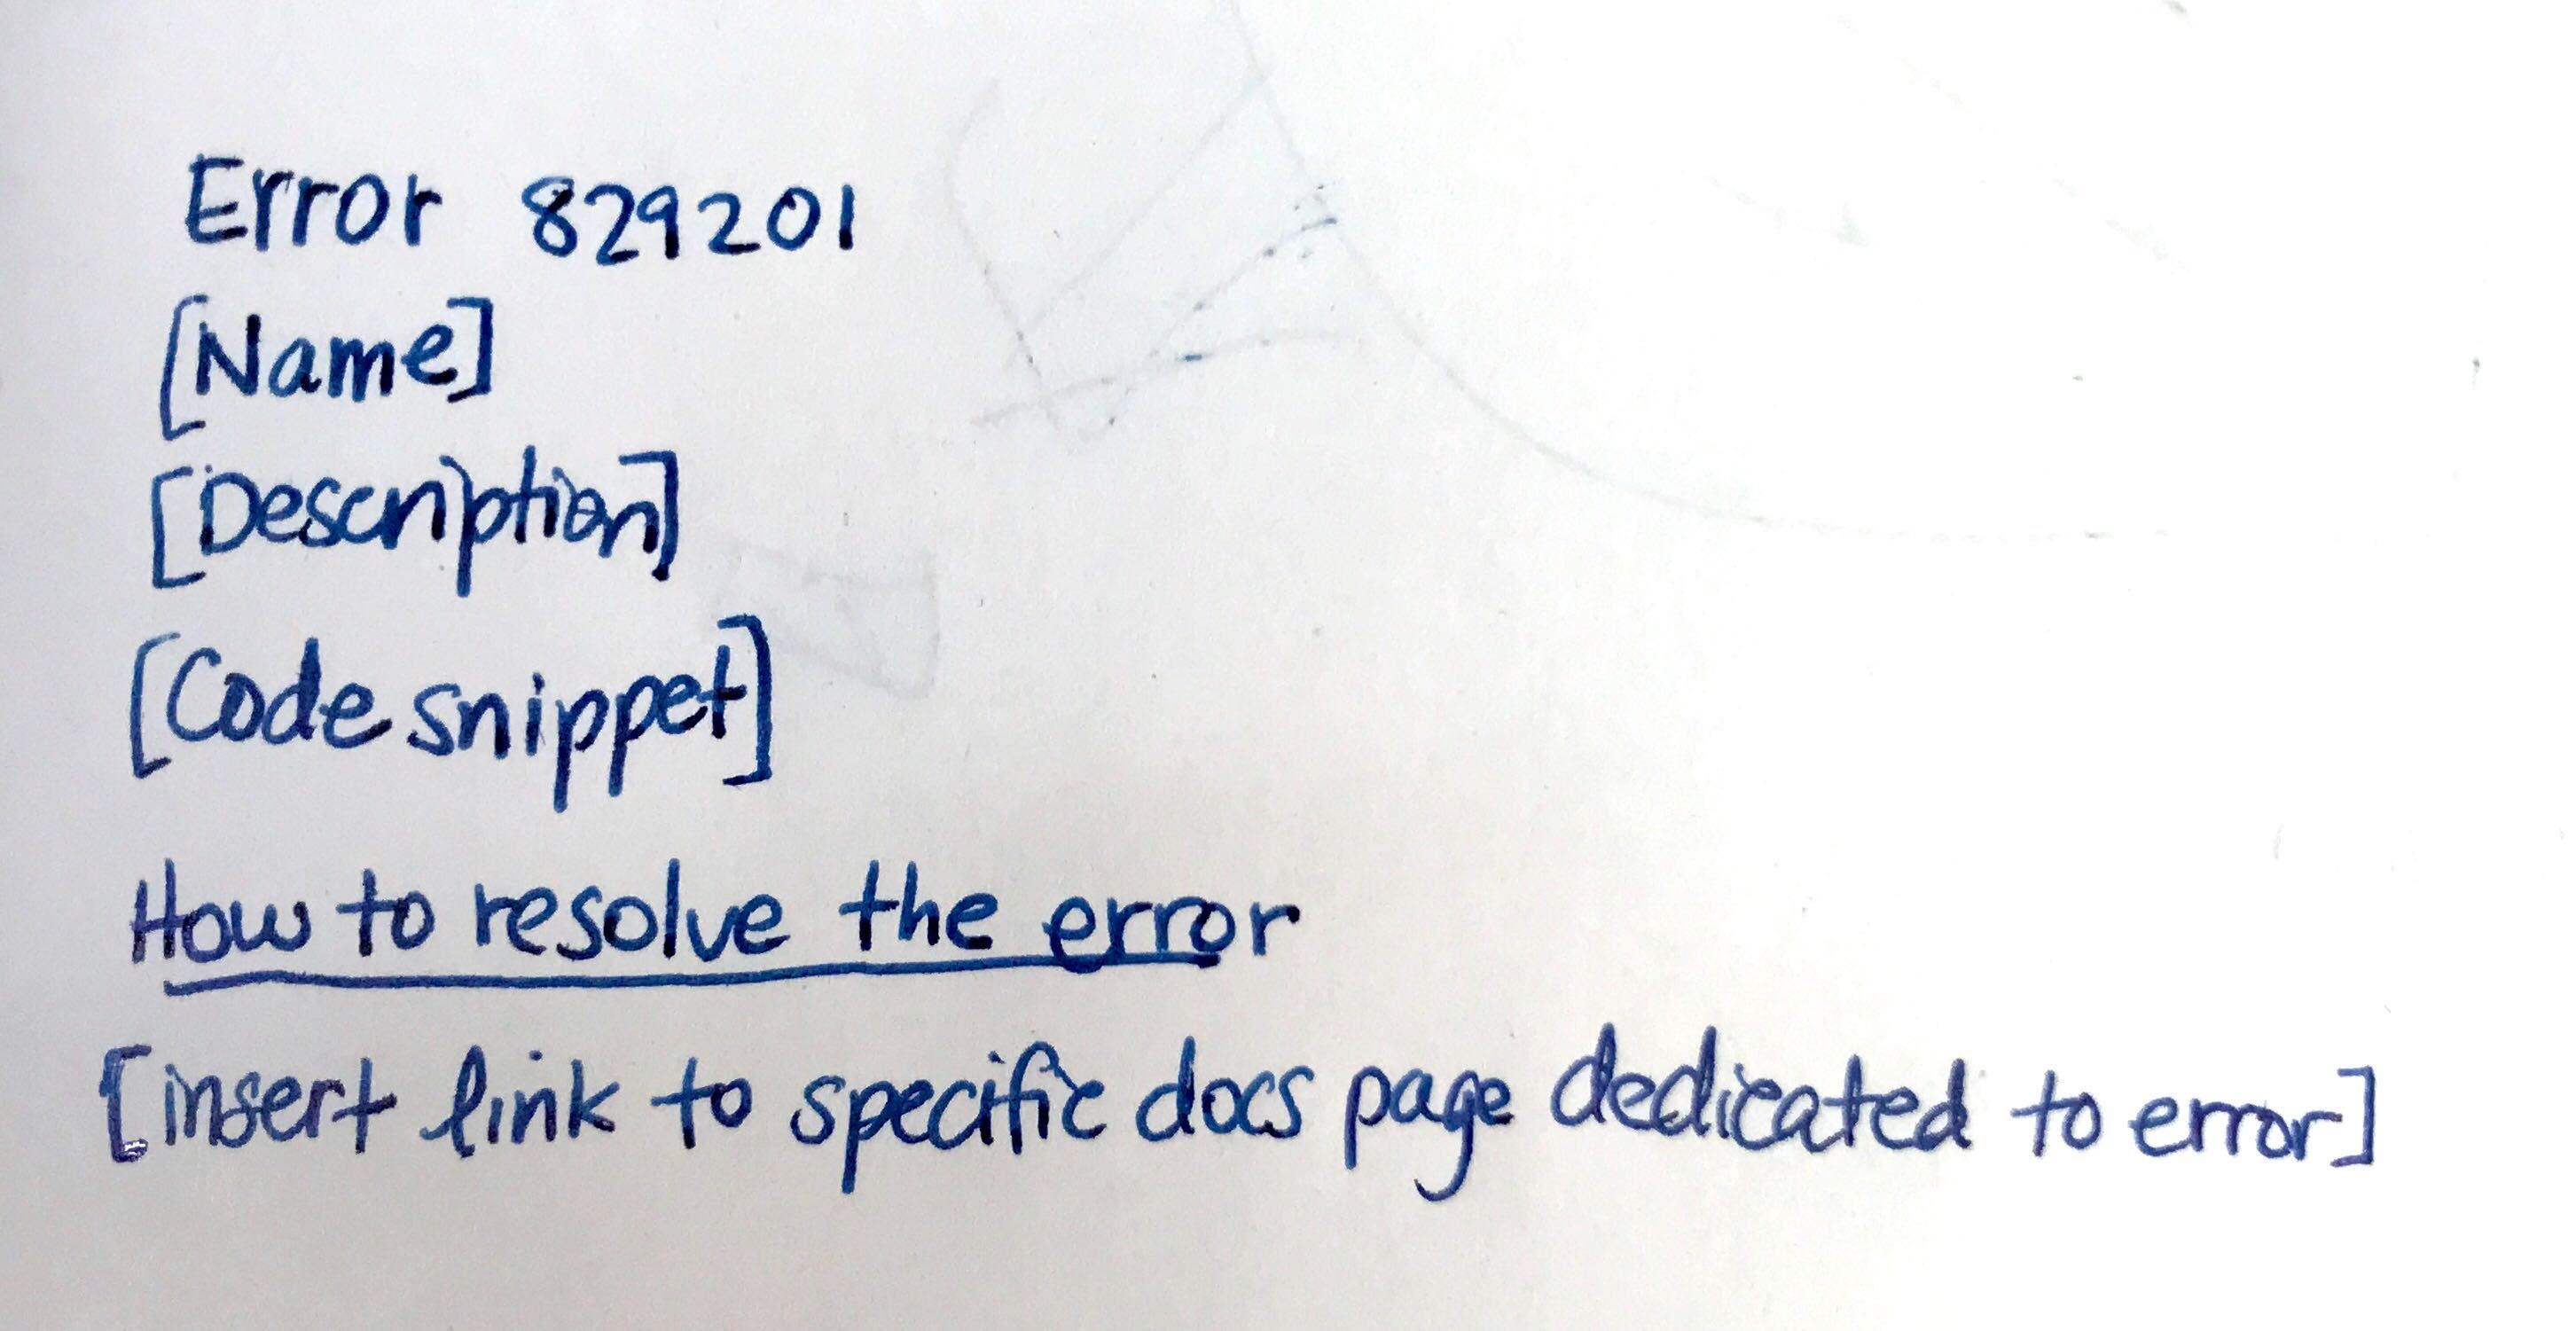 Error 829201
[Name]
[Description]
[Code snippet]
How to resolve the error
[insert link to specific docs page dedicated to error]